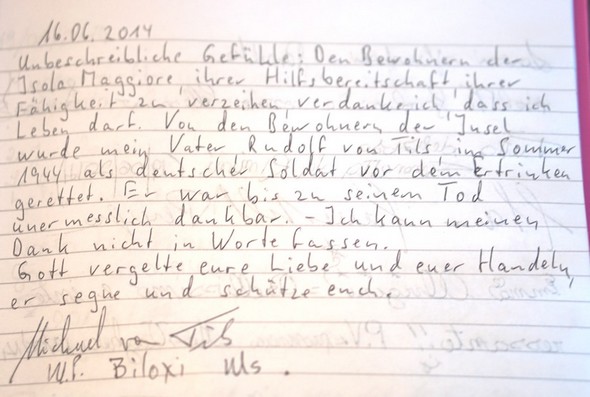 16.06.2014
Unbeschreibliche Gefühle: Den Bewohnern der
Isola Maggiore, ihrer Hilfsbereitschaft, ihrer
Fähigkeit zu verzeihen, verdanke ich, dass ich
Leben darf. Von den Bewohnern der Insel
wurde mein Vater Rudolf von Tils im Sommer
1944 als deutscher Soldat vor dem Ertrinken
gerettet. Er war bis zu seinem Tod
unermesslich dankbar. - Ich kann meinen
Dank nicht in Worte fassen.
Gott vergelte eure Liebe und euer Handeln,
er segne und schütze euch.
Michael von Tils
Biloxi Ms.